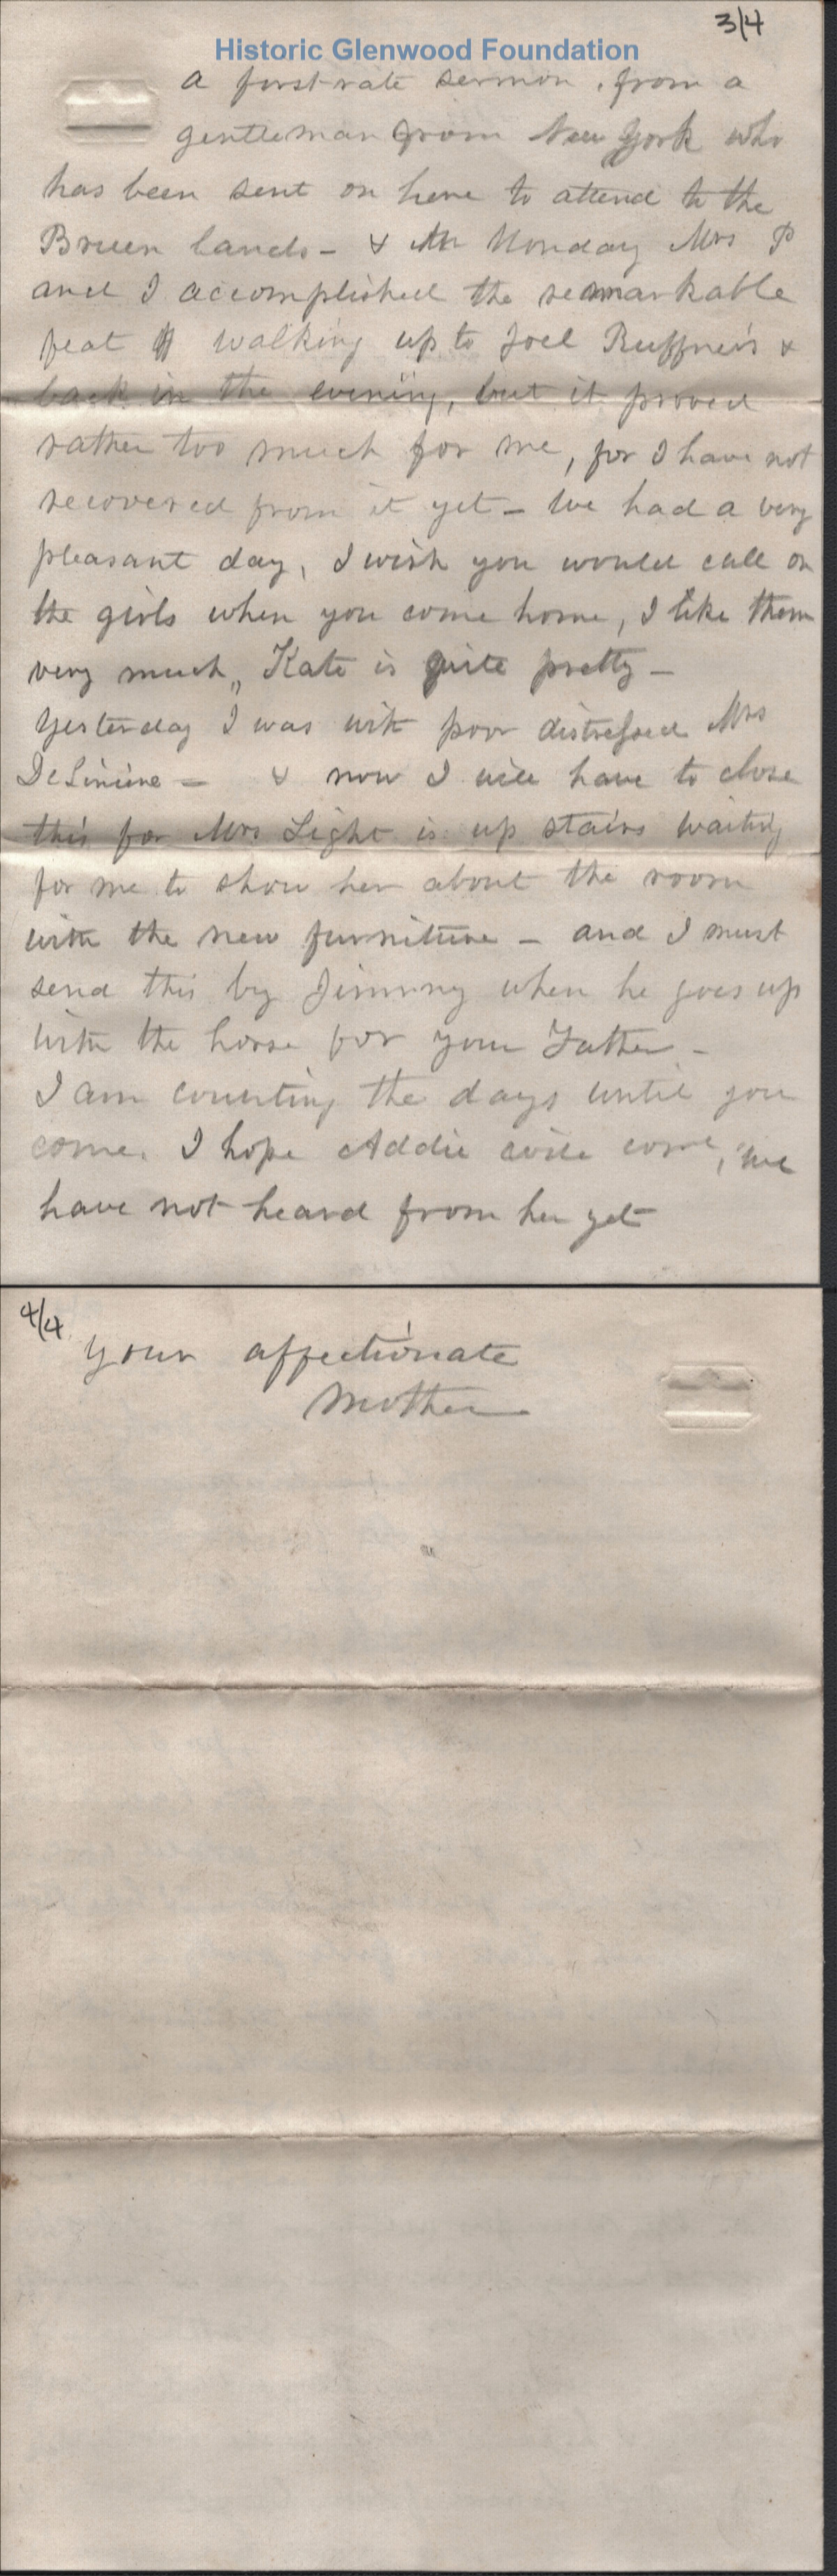 3/4
Historic Glenwood Foundation
a first rate sermon, from a
gentleman from New York who
has been sent on here to attend to the
Bruen lands - & on Monday Mrs P
and I accomplished the remarkable
feat of walking up to Joel Ruffner's &
back in the evening, but it proved
rather too much for me, for I have not
recovered from it yet - We had a very
pleasant day, I wish you would call on
the girls when you come home, I like them
very much,, Kate is quite pretty -
Yesterday I was with poor distressed Mrs
- & now I will have to close
this for Mrs Light is up stairs waiting
for me to show her about the room
with the new furniture - and I must
send this by Jimmy when he goes up
with the horse for your Father -
I am counting the days until you
come. I hope Addie will come, we
have not heard from her yet
4/4
Your affectionate
Mother